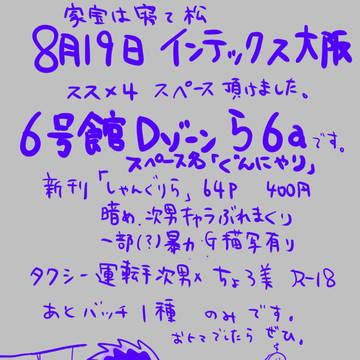 家宝は寝て松
8月19日 インテックス大阪
スス×4 スペース 頂けました。
6号館Dゾーン ら6aです。
スペース名「ぐんにゃり」
新刊「しゃんぐりら」64P 400円
暗め、次男キャラぶれまくり
一部(?)暴力・G描写有り
タクシー運転手次男×ちょろ美 R-18
あとバッチ1種 のみです。
おヒマでしたら ぜひ。